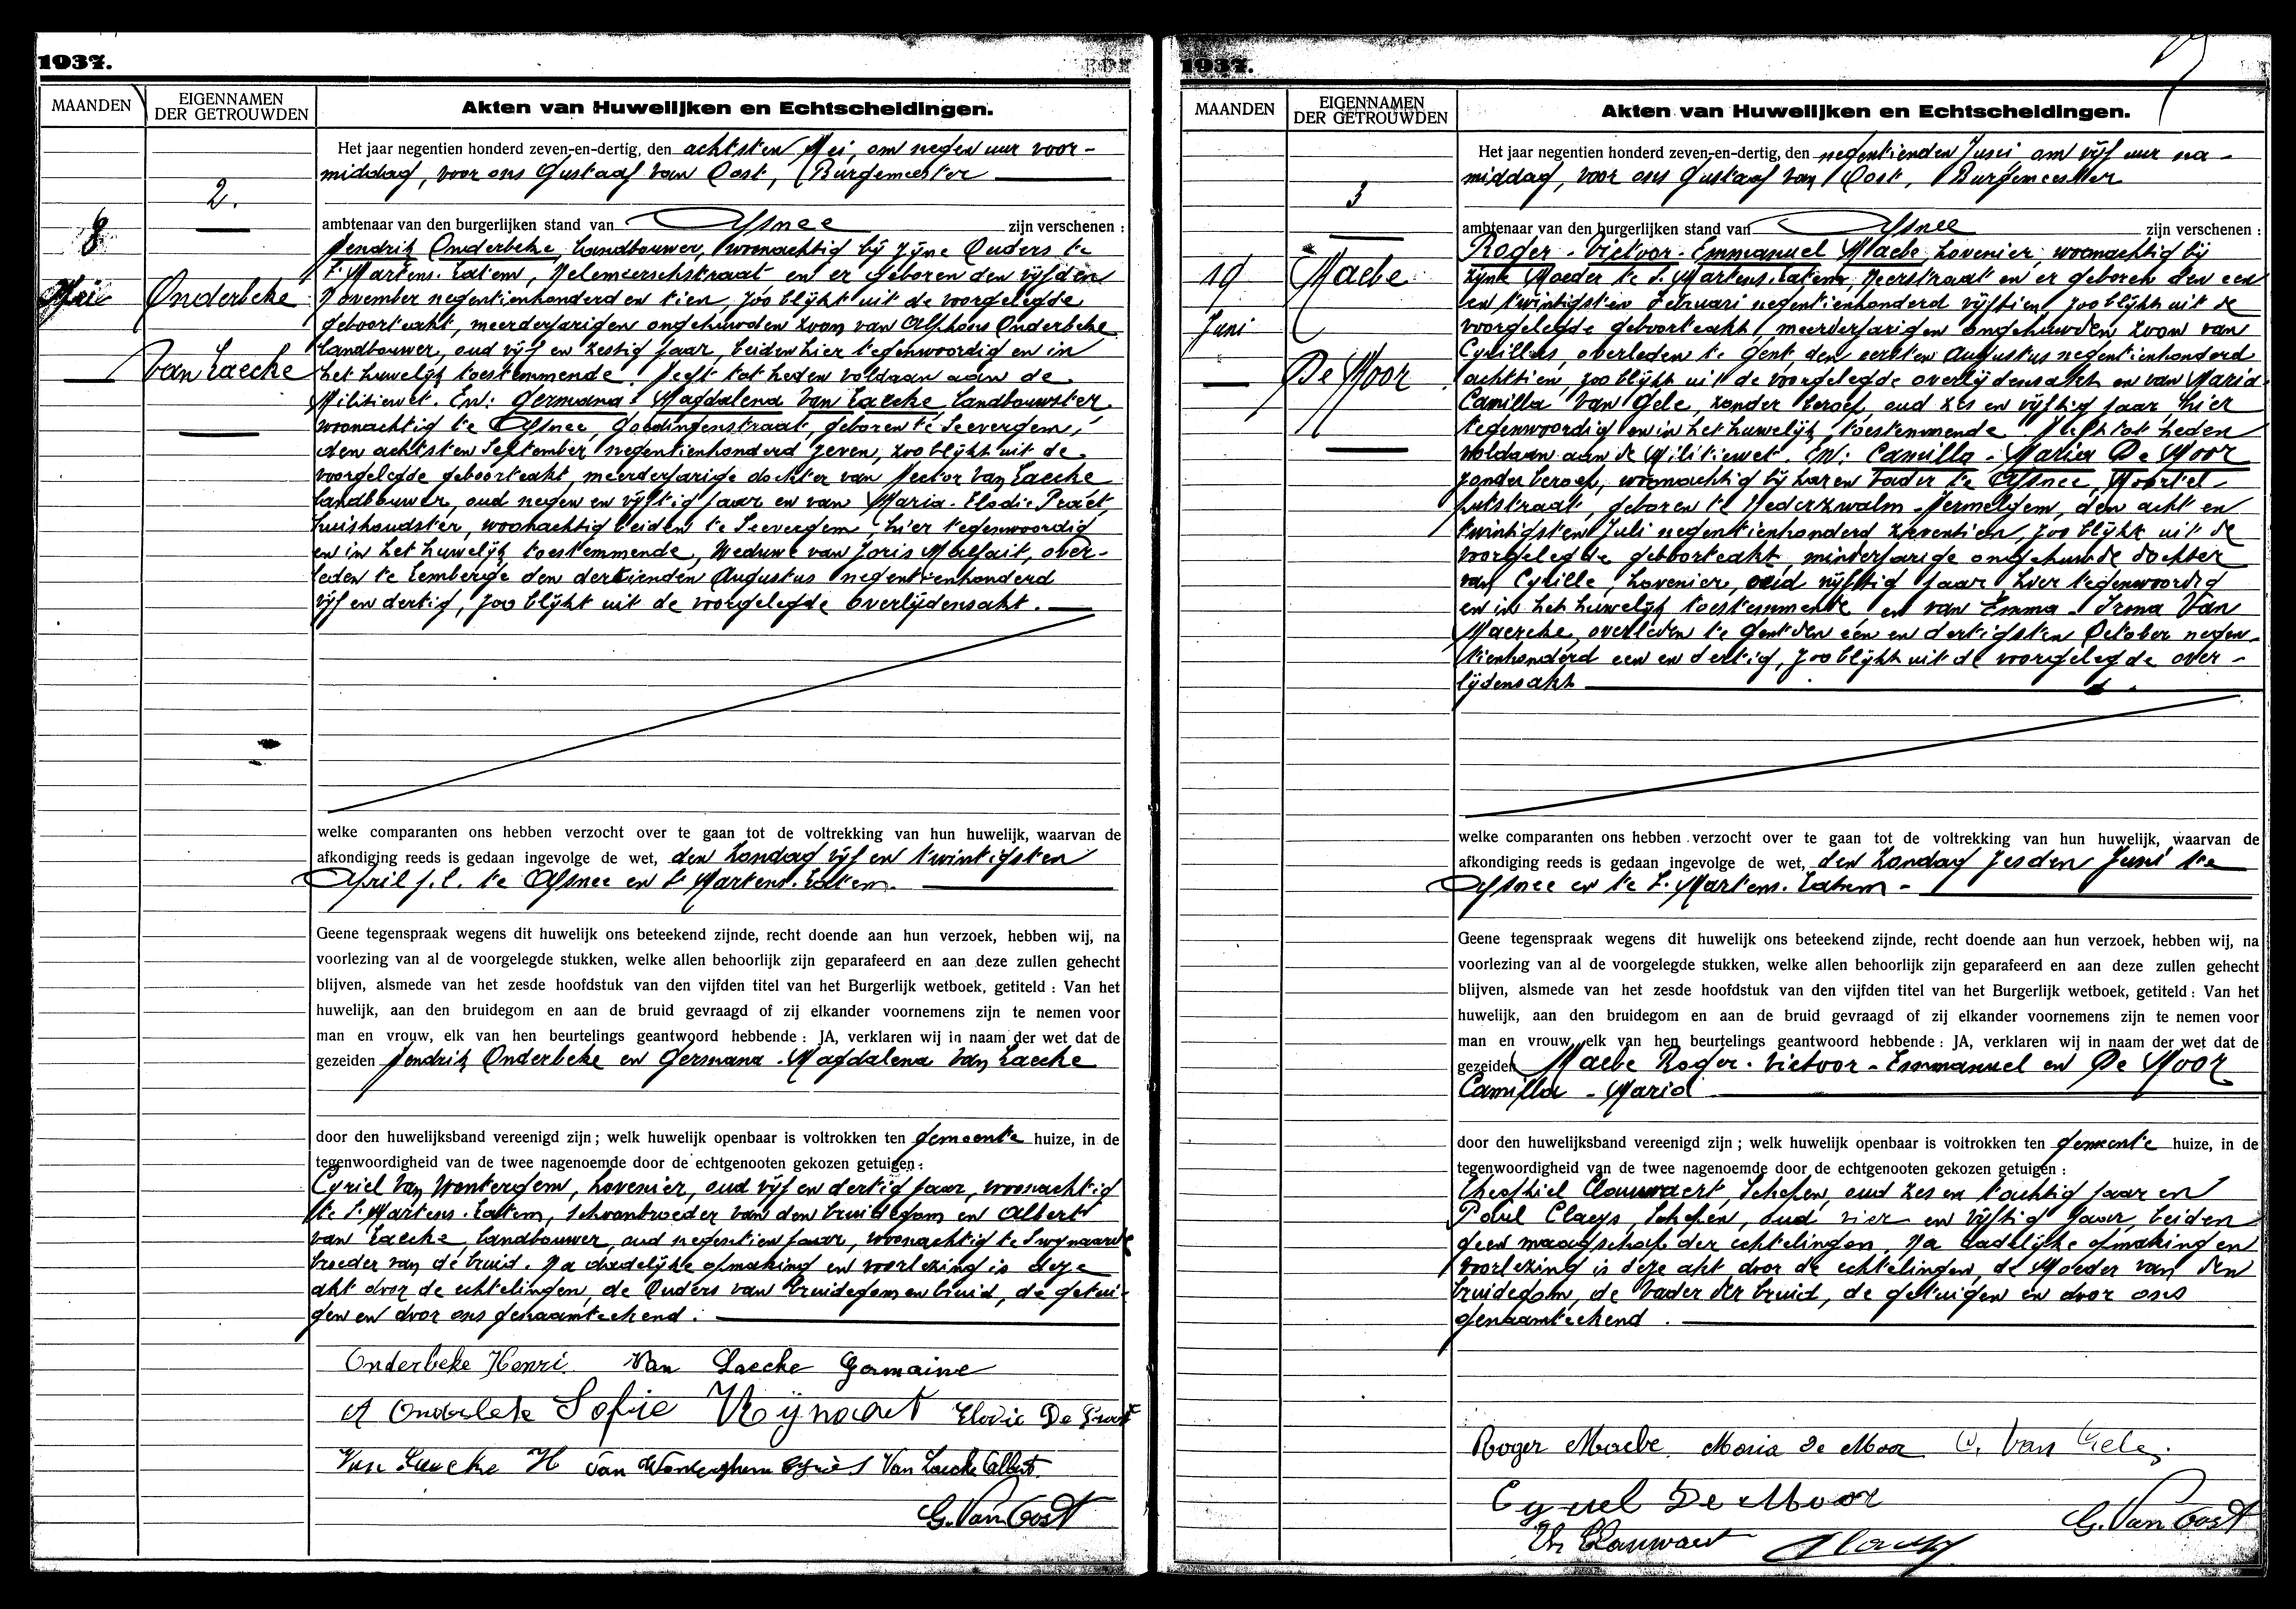 1937.
MAANDEN
EIGENNAMEN
DER GETROUWDEN
Akten van Huwelijken en Echtscheidingen.
2.
8
Mei
Onderbeke
Van Laecke
Het jaar negentien honderd zeven-en-dertig, den achtsten Mei, om negen uur voor-
middag, voor ons Gustaaf Van Oost, Burgemeester
ambtenaar van den burgerlijken stand van Afsnee zijn verschenen :
Hendrik Onderbeke, landbouwer, woonachtig bij zijne Ouders te
St Martens-Latem, Helemeerschstraat en er geboren den vijfden
November negentienhonderd en tien, zoo blijkt uit de voorgelegde
geboorteakt, meerderjarigen ongehuwden zoon van Alphons Onderbeke
landbouwer, oud vijf en zestig jaar, beiden hier tegenwoordig en in
het huwelijk toestemmende. Heeft tot heden voldaan aan de
Militiewet. En: Germana-Magdalena Van Laecke landbouwster
woonachtig te Afsnee, Goedingenstraat, geboren te Seevergem,
den achtsten September negentienhonderd zeven, zoo blijkt uit de
voorgelegde geboorteakt, meerderjarige dochter van Hector Van Laecke
landbouwer, oud negen en vijftig jaar en van Maria-Elodie Praet,
huishoudster, woonachtig beiden te Seevergem, hier tegenwoordig
en in het huwelijk toestemmende, Weduwe van Joris Malfait, over-
leden te Lemberge den dertienden Augustus negentienhonderd
vijf en dertig, zoo blijkt uit de voorgelegde overlijdensakt.
welke comparanten ons hebben verzocht over te gaan tot de voltrekking van hun huwelijk, waarvan de
afkondiging reeds is gedaan ingevolge de wet, den Zondag vijf en twintigsten
April j.l. te Afsnee en St Martens-Latem.
Geene tegenspraak wegens dit huwelijk ons beteekend zijnde, recht doende aan hun verzoek, hebben wij, na
voorlezing van al de voorgelegde stukken, welke allen behoorlijk zijn geparafeerd en aan deze zullen gehecht
blijven, alsmede van het zesde hoofdstuk van den vijfden titel van het Burgerlijk wetboek, getiteld : Van het
huwelijk, aan den bruidegom en aan de bruid gevraagd of zij elkander voornemens zijn te nemen voor
man en vrouw, elk van hen beurtelings geantwoord hebbende : JA, verklaren wij in naam der wet dat de
gezeiden Hendrik Onderbeke en Germana-Magdalena Van Laecke
door den huwelijksband vereenigd zijn ; welk huwelijk openbaar is voltrokken ten gemeente huize, in de
tegenwoordigheid van de twee nagenoemde door de echtgenooten gekozen getuigen :
Cyriel Van Wontergem, hovenier, oud vijf en dertig jaar, woonachtig
te St Martens-Latem, schoonbroeder van den bruidegom en Albert
Van Laecke, landbouwer, oud negentien jaar, woonachtig te Swynaarde
broeder van de bruid. Na dadelijke opmaking en voorlezing is deze
akt door de echtelingen, de Ouders van bruidegom en bruid, de getui-
gen en door ons genaamteekend.
Onderbeke Henri. Van Laecke Germaine
A Onderbeke Sofie Elodie De Praet
Van Laecke H Van Wonterghem Cyriel Van Laecke Albert
G. Van Oost
1937.
MAANDEN
EIGENNAMEN
DER GETROUWDEN
Akten van Huwelijken en Echtscheidingen.
3
19
Juni
Maebe
De Moor
Het jaar negentien honderd zeven-en-dertig, den negentienden Juni, om vijf uur na-
middag, voor ons Gustaaf Van Oost, Burgemeester
ambtenaar van den burgerlijken stand van Afsnee zijn verschenen :
Roger-Victoor-Emmanuel Maebe, hovenier, woonachtig bij
zijne Moeder te St Martens-Latem, Meerstraat en er geboren den een
en twintigsten Februari negentienhonderd vijftien, zoo blijkt uit de
voorgelegde geboorteakt, meerderjarigen ongehuwden zoon van
Cyrillus, overleden te Gent den eersten Augustus negentienhonderd
achttien, zoo blijkt uit de voorgelegde overlijdensakt en van Maria-
Camilla Van Gele, zonder beroep, oud zes en vijftig jaar, hier
tegenwoordig en in het huwelijk toestemmende. Heeft tot heden
voldaan aan de Militiewet. En: Camilla-Maria De Moor
zonder beroep, woonachtig bij haren Vader te Afsnee, Moortel-
putstraat, geboren te Nederzwalm-Hermelgem, den acht en
twintigsten Juli negentienhonderd zeventien, zoo blijkt uit de
voorgelegde geboorteakt, minderjarige ongehuwde dochter
van Cyrille, hovenier, oud vijftig jaar, hier tegenwoordig
en in het huwelijk toestemmende, en van Emma-Irma Van
Maercke, overleden te Gent den een en dertigsten October negen-
tienhonderd een en dertig, zoo blijkt uit de voorgelegde over-
lijdensakt
welke comparanten ons hebben verzocht over te gaan tot de voltrekking van hun huwelijk, waarvan de
afkondiging reeds is gedaan ingevolge de wet, den Zondag zesden Juni te
Afsnee en te St Martens-Latem -
Geene tegenspraak wegens dit huwelijk ons beteekend zijnde, recht doende aan hun verzoek, hebben wij, na
voorlezing van al de voorgelegde stukken, welke allen behoorlijk zijn geparafeerd en aan deze zullen gehecht
blijven, alsmede van het zesde hoofdstuk van den vijfden titel van het Burgerlijk wetboek, getiteld : Van het
huwelijk, aan den bruidegom en aan de bruid gevraagd of zij elkander voornemens zijn te nemen voor
man en vrouw, elk van hen beurtelings geantwoord hebbende : JA, verklaren wij in naam der wet dat de
gezeiden Maebe Roger-Victoor-Emmanuel en De Moor
Camilla-Maria
door den huwelijksband vereenigd zijn ; welk huwelijk openbaar is voltrokken ten gemeente huize, in de
tegenwoordigheid van de twee nagenoemde door de echtgenooten gekozen getuigen :
Theophiel Clauwaert, Schepen, oud zes en tachtig jaar en
Paul Claeys, Schepen, oud vier en vijftig jaar, beiden
geen maagschap der echtelingen. Na dadelijke opmaking en
voorlezing is deze akt door de echtelingen, de Moeder van den
bruidegom, de Vader der bruid, de getuigen en door ons
genaamteekend.
Roger Maebe. Maria De Moor C. Van Gele
Cyriel De Moor
G. Van Oost
Th Clauwaert Claeys